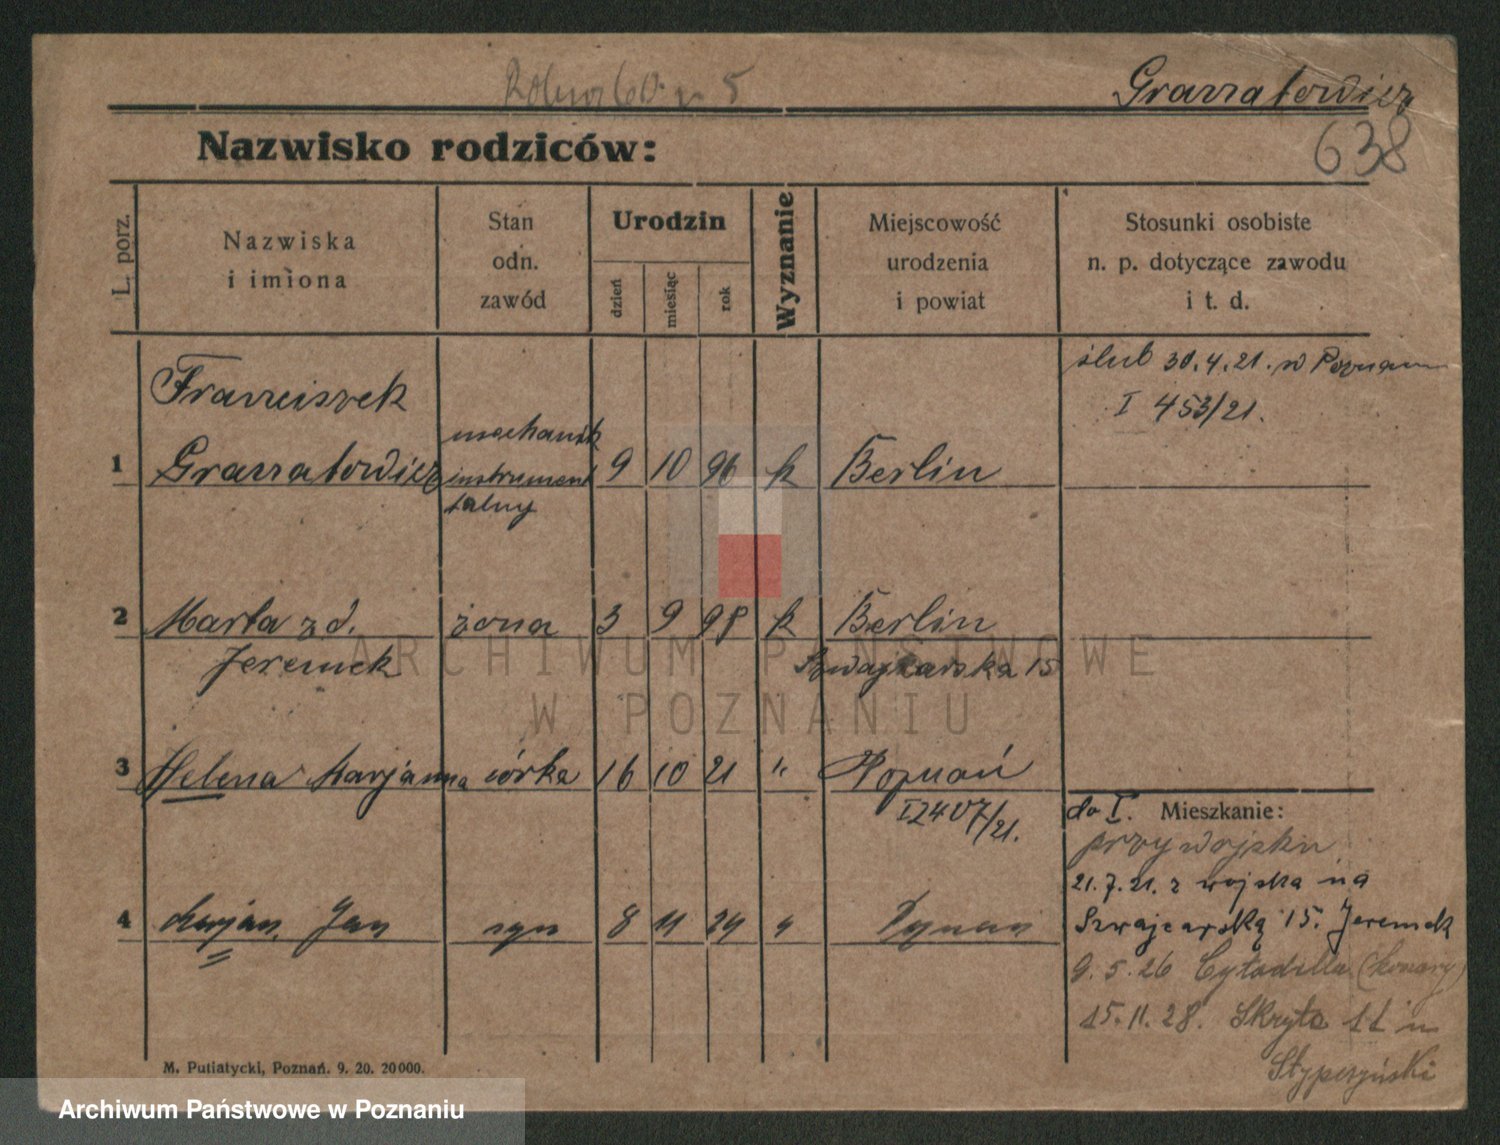 Grassatowicz
638
Nazwisko rodziców:
L. porz.
Nazwiska
i imiona
Stan
odn.
zawód
Urodzin
dzień
miesiąc
rok
Wyznanie
Miejscowość
urodzenia
i powiat
Stosunki osobiste
n. p. dotyczące zawodu
i t. d.
ślub 30.4.21. w Poznaniu
I 453/21.
1 Franciszek
Grassatowicz
mechanik
instrumen
talny
9 10 96 k Berlin
2 Marta z d. żona 3 9 98 k Berlin
Jeremek Szwajcarska 15
3 Helena Marjanna córka 16 10 21 " Poznań
I 2407/21.
4 Marjan Jan syn 8 11 24 " Poznań
do I. Mieszkanie:
przy wojsku
21.7.21. z wojska na
Szwajcarską 15. Jeremek
9.5.26 Cytadella (koszary)
15.11.28. Skryta 11 u
Stypczyński
M. Putiatycki, Poznań. 9. 20. 20 000.
ARCHIWUM PAŃSTWOWE
W POZNANIU
Archiwum Państwowe w Poznaniu